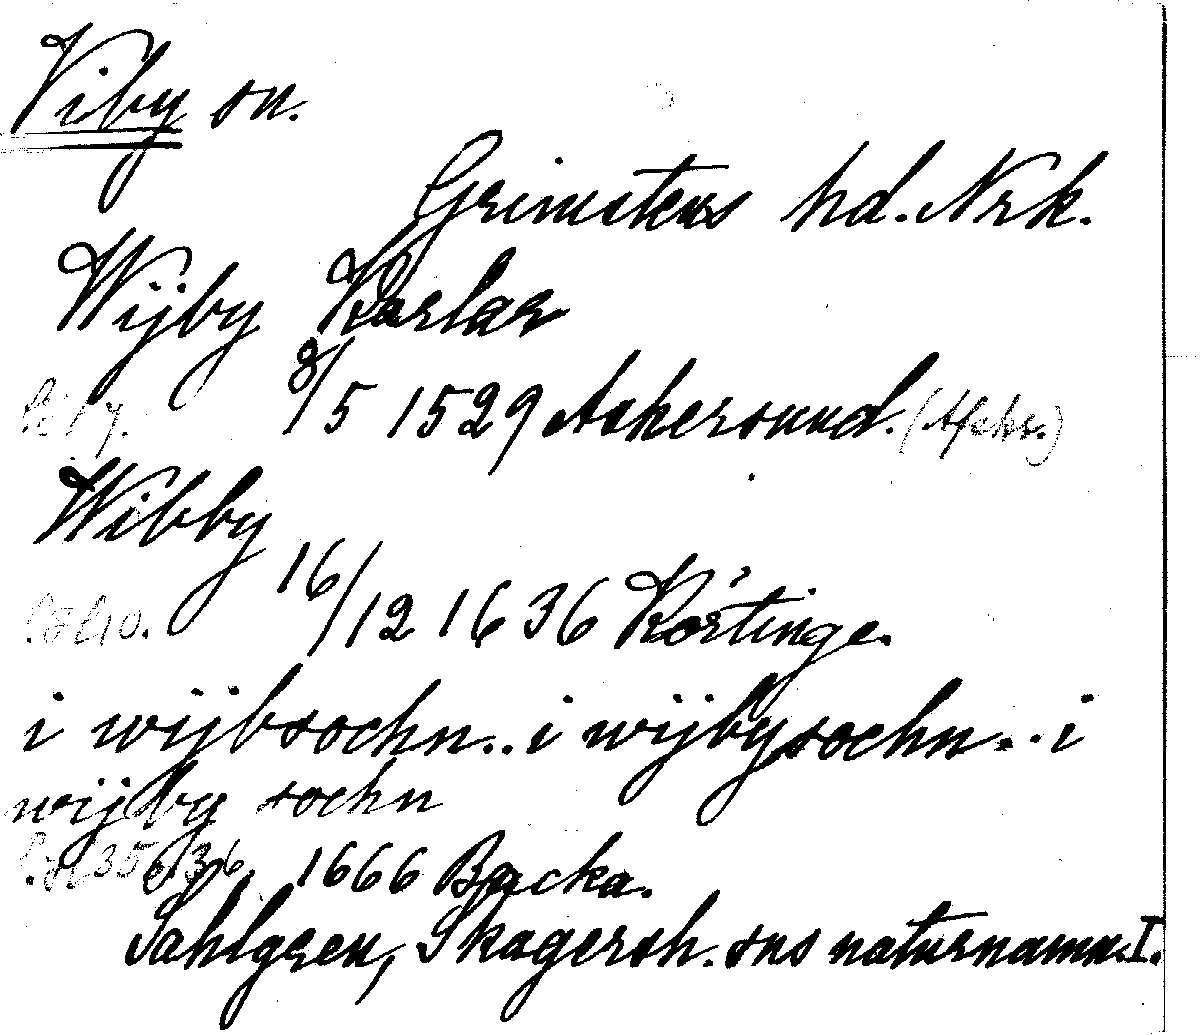 Viby sn.
Grimstens hd. Nrk.
Wijby Karlar
8/5 1529 Askersund.
Wibby
16/12 1636 Körtinge.
i wijbsochn.. i wijbysochn... i
wijby sochn
1666 Backa.
Sahlgren, Skagersh. sns naturnamn. I.